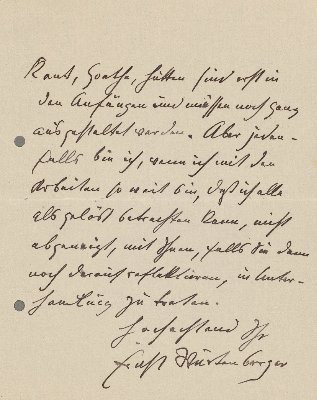 Kant, Goethe, Hutten sind erst in
den Anfängen und müssen noch ganz
ausgestaltet werden. Aber jeden-
falls bin ich, wenn ich mit den
Arbeiten so weit bin, daß ich alle
als gelöst betrachten kann, nicht
abgeneigt, mit Ihnen, falls Sie dann
noch darauf reflektieren, in Unter-
handlung zu treten.
Hochachtend Ihr
Ernst Würtenberger